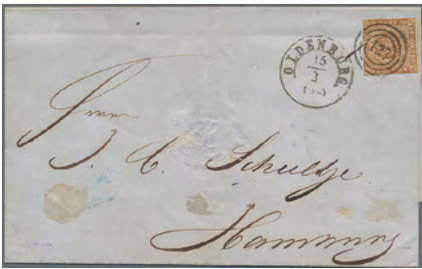 OLDENBURG
15
3
Herrn
J. C. Schultze
Hamburg